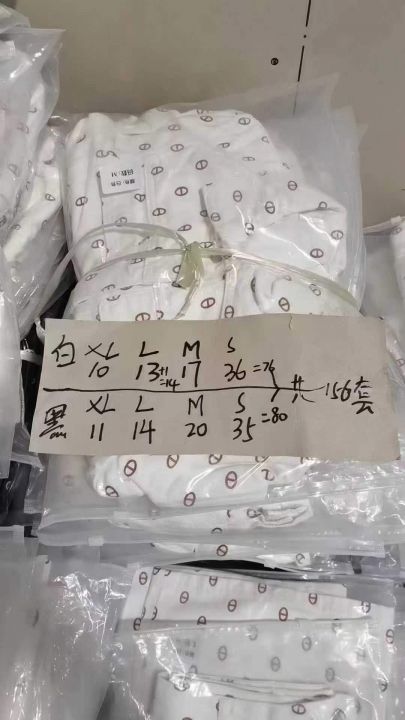 颜色:白色
白数:M
白 XL L M S
10 13+1=14 17 36=76
共156套
黑 XL L M S
11 14 20 35=80